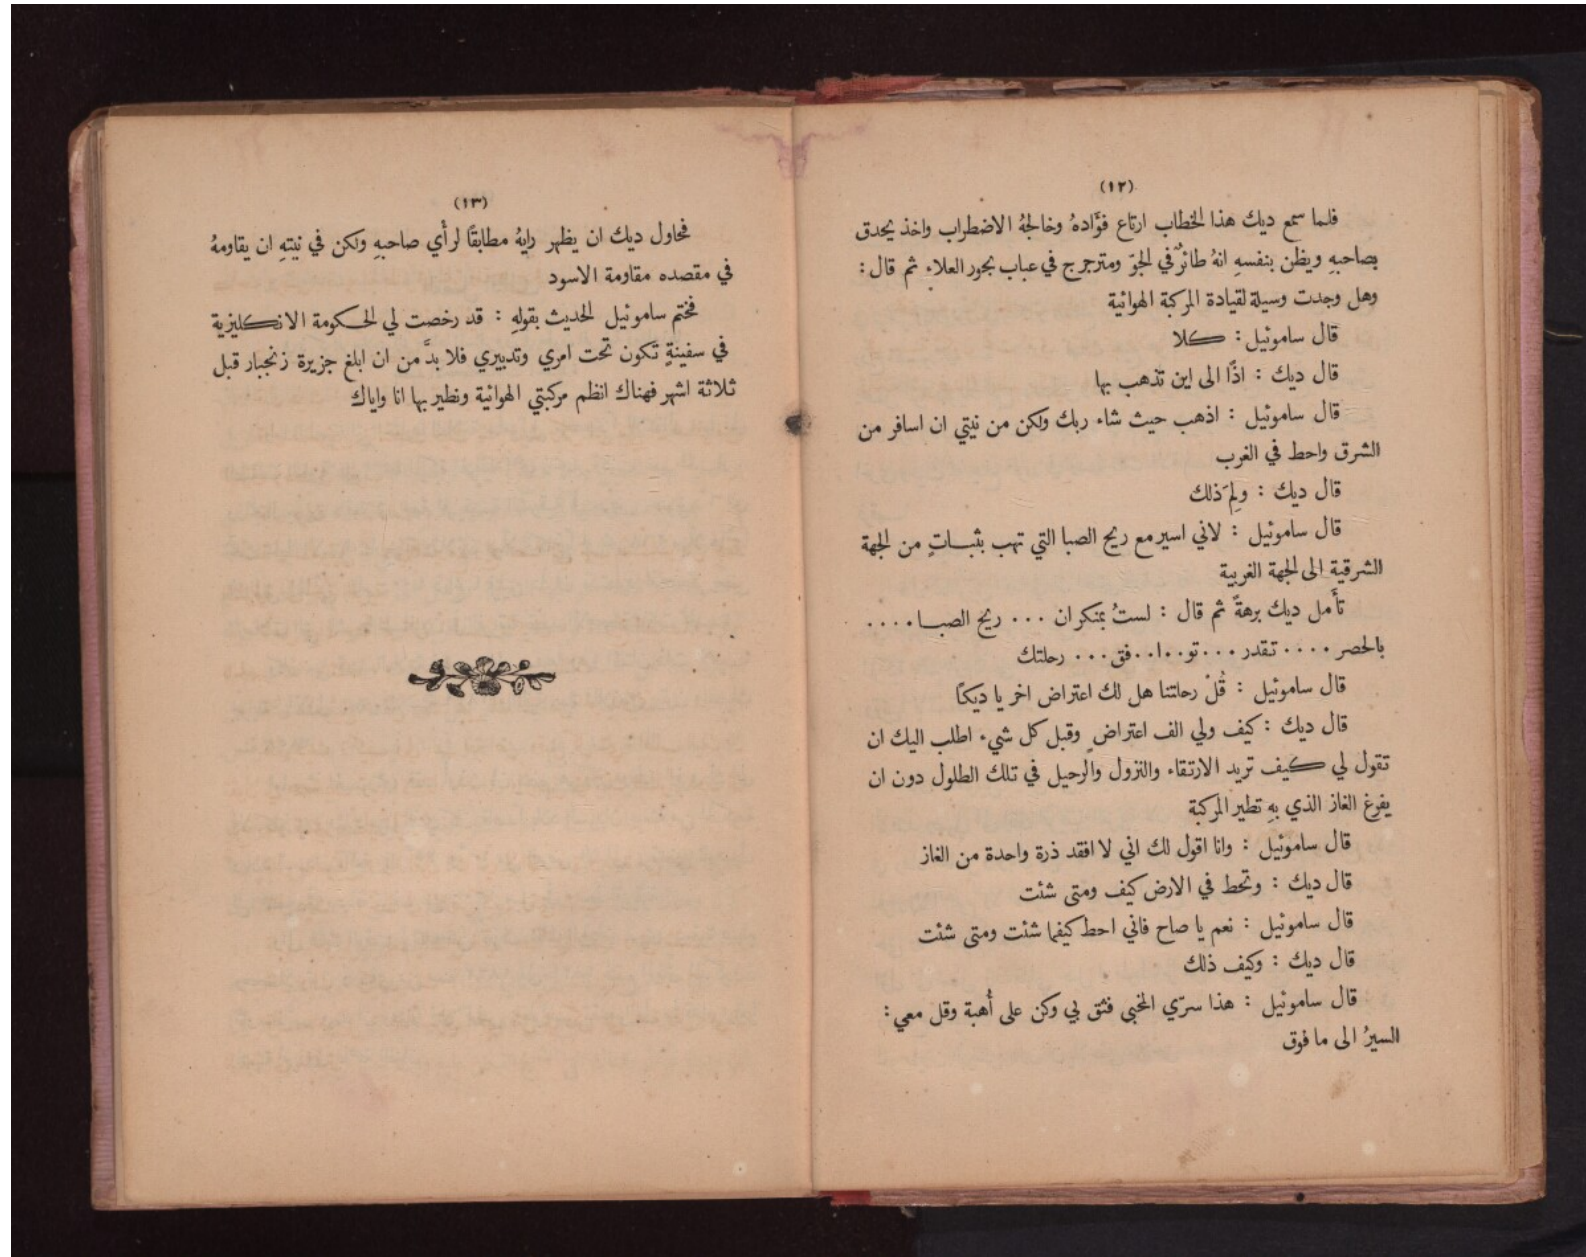 (١٢)
فلما سمع ديك هذا الخطاب ارتاع فوَّادهُ وخالجهُ الاضطراب واخذ يحدق
بصاحبهِ ويظن بنفسهِ انهُ طائرٌ في الجوّ ومترجرج في عباب بحور العلاء ثم قال :
وهل وجدت وسيلة لقيادة المركبة الهوائية
قال ساموئيل : كلا
قال ديك : اذًا الى اين تذهب بها
قال ساموئيل : اذهب حيث شاء ربك ولكن من نيتي ان اسافر من
الشرق واحط في الغرب
قال ديك : ولِمَ ذلك
قال ساموئيل : لاني اسير مع ريح الصبا التي تهب بثباتٍ من الجهة
الشرقية الى الجهة الغربية
تأَمل ديك برهةً ثم قال : لستُ بمنكر ان ... ريح الصبا ....
بالحصر .... تقدر ... تو..ا..فق ... رحلتك
قال ساموئيل : قُلْ رحلتنا هل لك اعتراض اخر يا ديكنا
قال ديك : كيف ولي الف اعتراضٍ وقبل كل شيء اطلب اليك ان
تقول لي كيف تريد الارتقاء والنزول والرحيل في تلك الطلول دون ان
يفرغ الغاز الذي بهِ تطير المركبة
قال ساموئيل : وانا اقول لك اني لا افقد ذرة واحدة من الغاز
قال ديك : وتحط في الارض كيف ومتى شئت
قال ساموئيل : نعم يا صاح فاني احط كيفما شئت ومتى شئت
قال ديك : وكيف ذلك
قال ساموئيل : هذا سرّي المخبي فثق بي وكن على أُهبة وقل معي :
السيرُ الى ما فوق
(١٣)
فحاول ديك ان يظهر رايهُ مطابقًا لرأي صاحبهِ ولكن في نيتهِ ان يقاومهُ
في مقصده مقاومة الاسود
فختم ساموئيل الحديث بقولهِ : قد رخصت لي الحكومة الانكليزية
في سفينةٍ تكون تحت امري وتدبيري فلا بدَّ من ان ابلغ جزيرة زنجبار قبل
ثلاثة اشهر فهناك انظم مركبتي الهوائية ونطير بها انا واياك